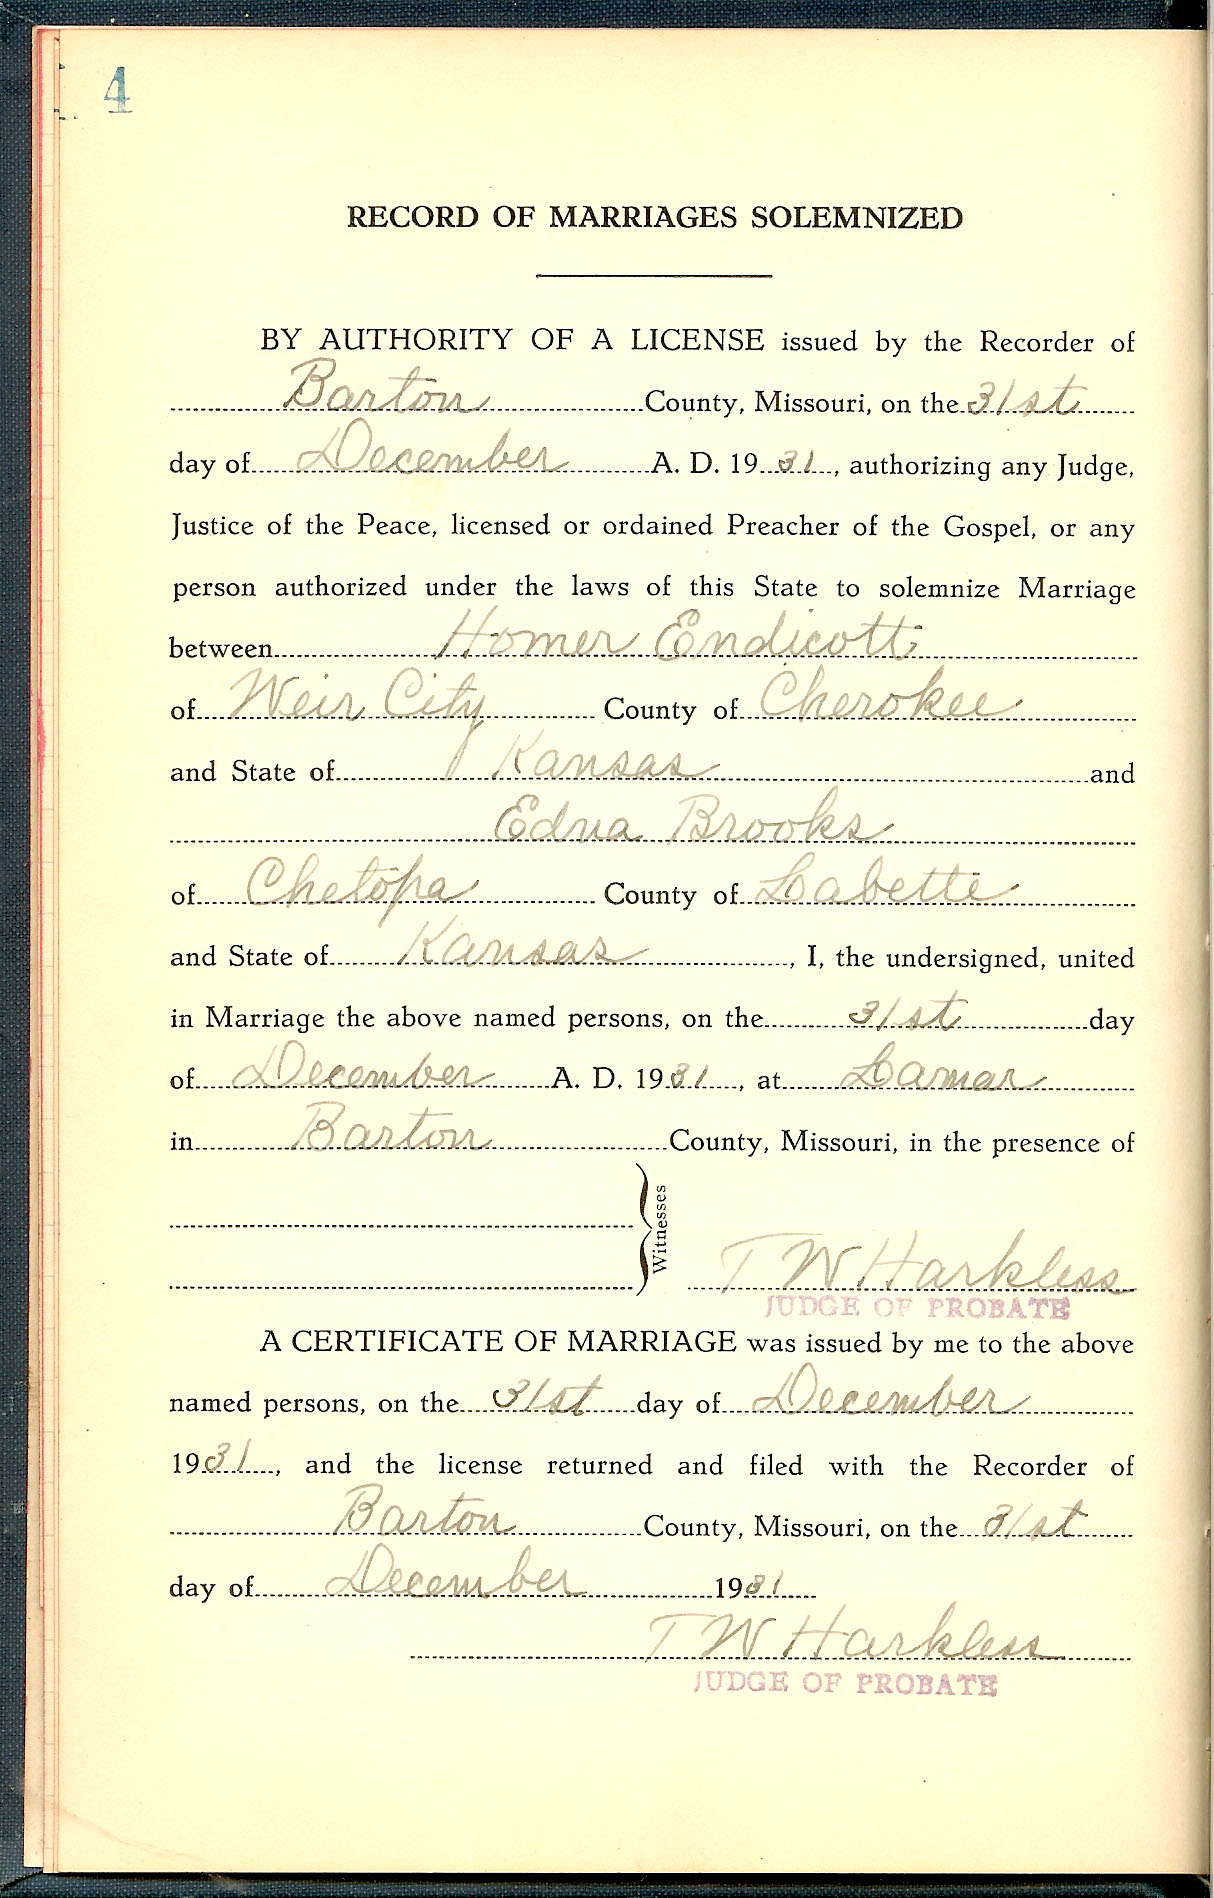 4
RECORD OF MARRIAGES SOLEMNIZED
BY AUTHORITY OF A LICENSE issued by the Recorder of
Barton County, Missouri, on the 31st
day of December A. D. 1931, authorizing any Judge,
Justice of the Peace, licensed or ordained Preacher of the Gospel, or any
person authorized under the laws of this State to solemnize Marriage
between Homer Endicott
of Weir City County of Cherokee
and State of Kansas and
Edna Brooks
of Chetopa County of Labette
and State of Kansas, I, the undersigned, united
in Marriage the above named persons, on the 31st day
of December A. D. 1931, at Lamar
in Barton County, Missouri, in the presence of
Witnesses
T W Harkless
JUDGE OF PROBATE
A CERTIFICATE OF MARRIAGE was issued by me to the above
named persons, on the 31st day of December
1931, and the license returned and filed with the Recorder of
Barton County, Missouri, on the 31st
day of December 1931
T W Harkless
JUDGE OF PROBATE